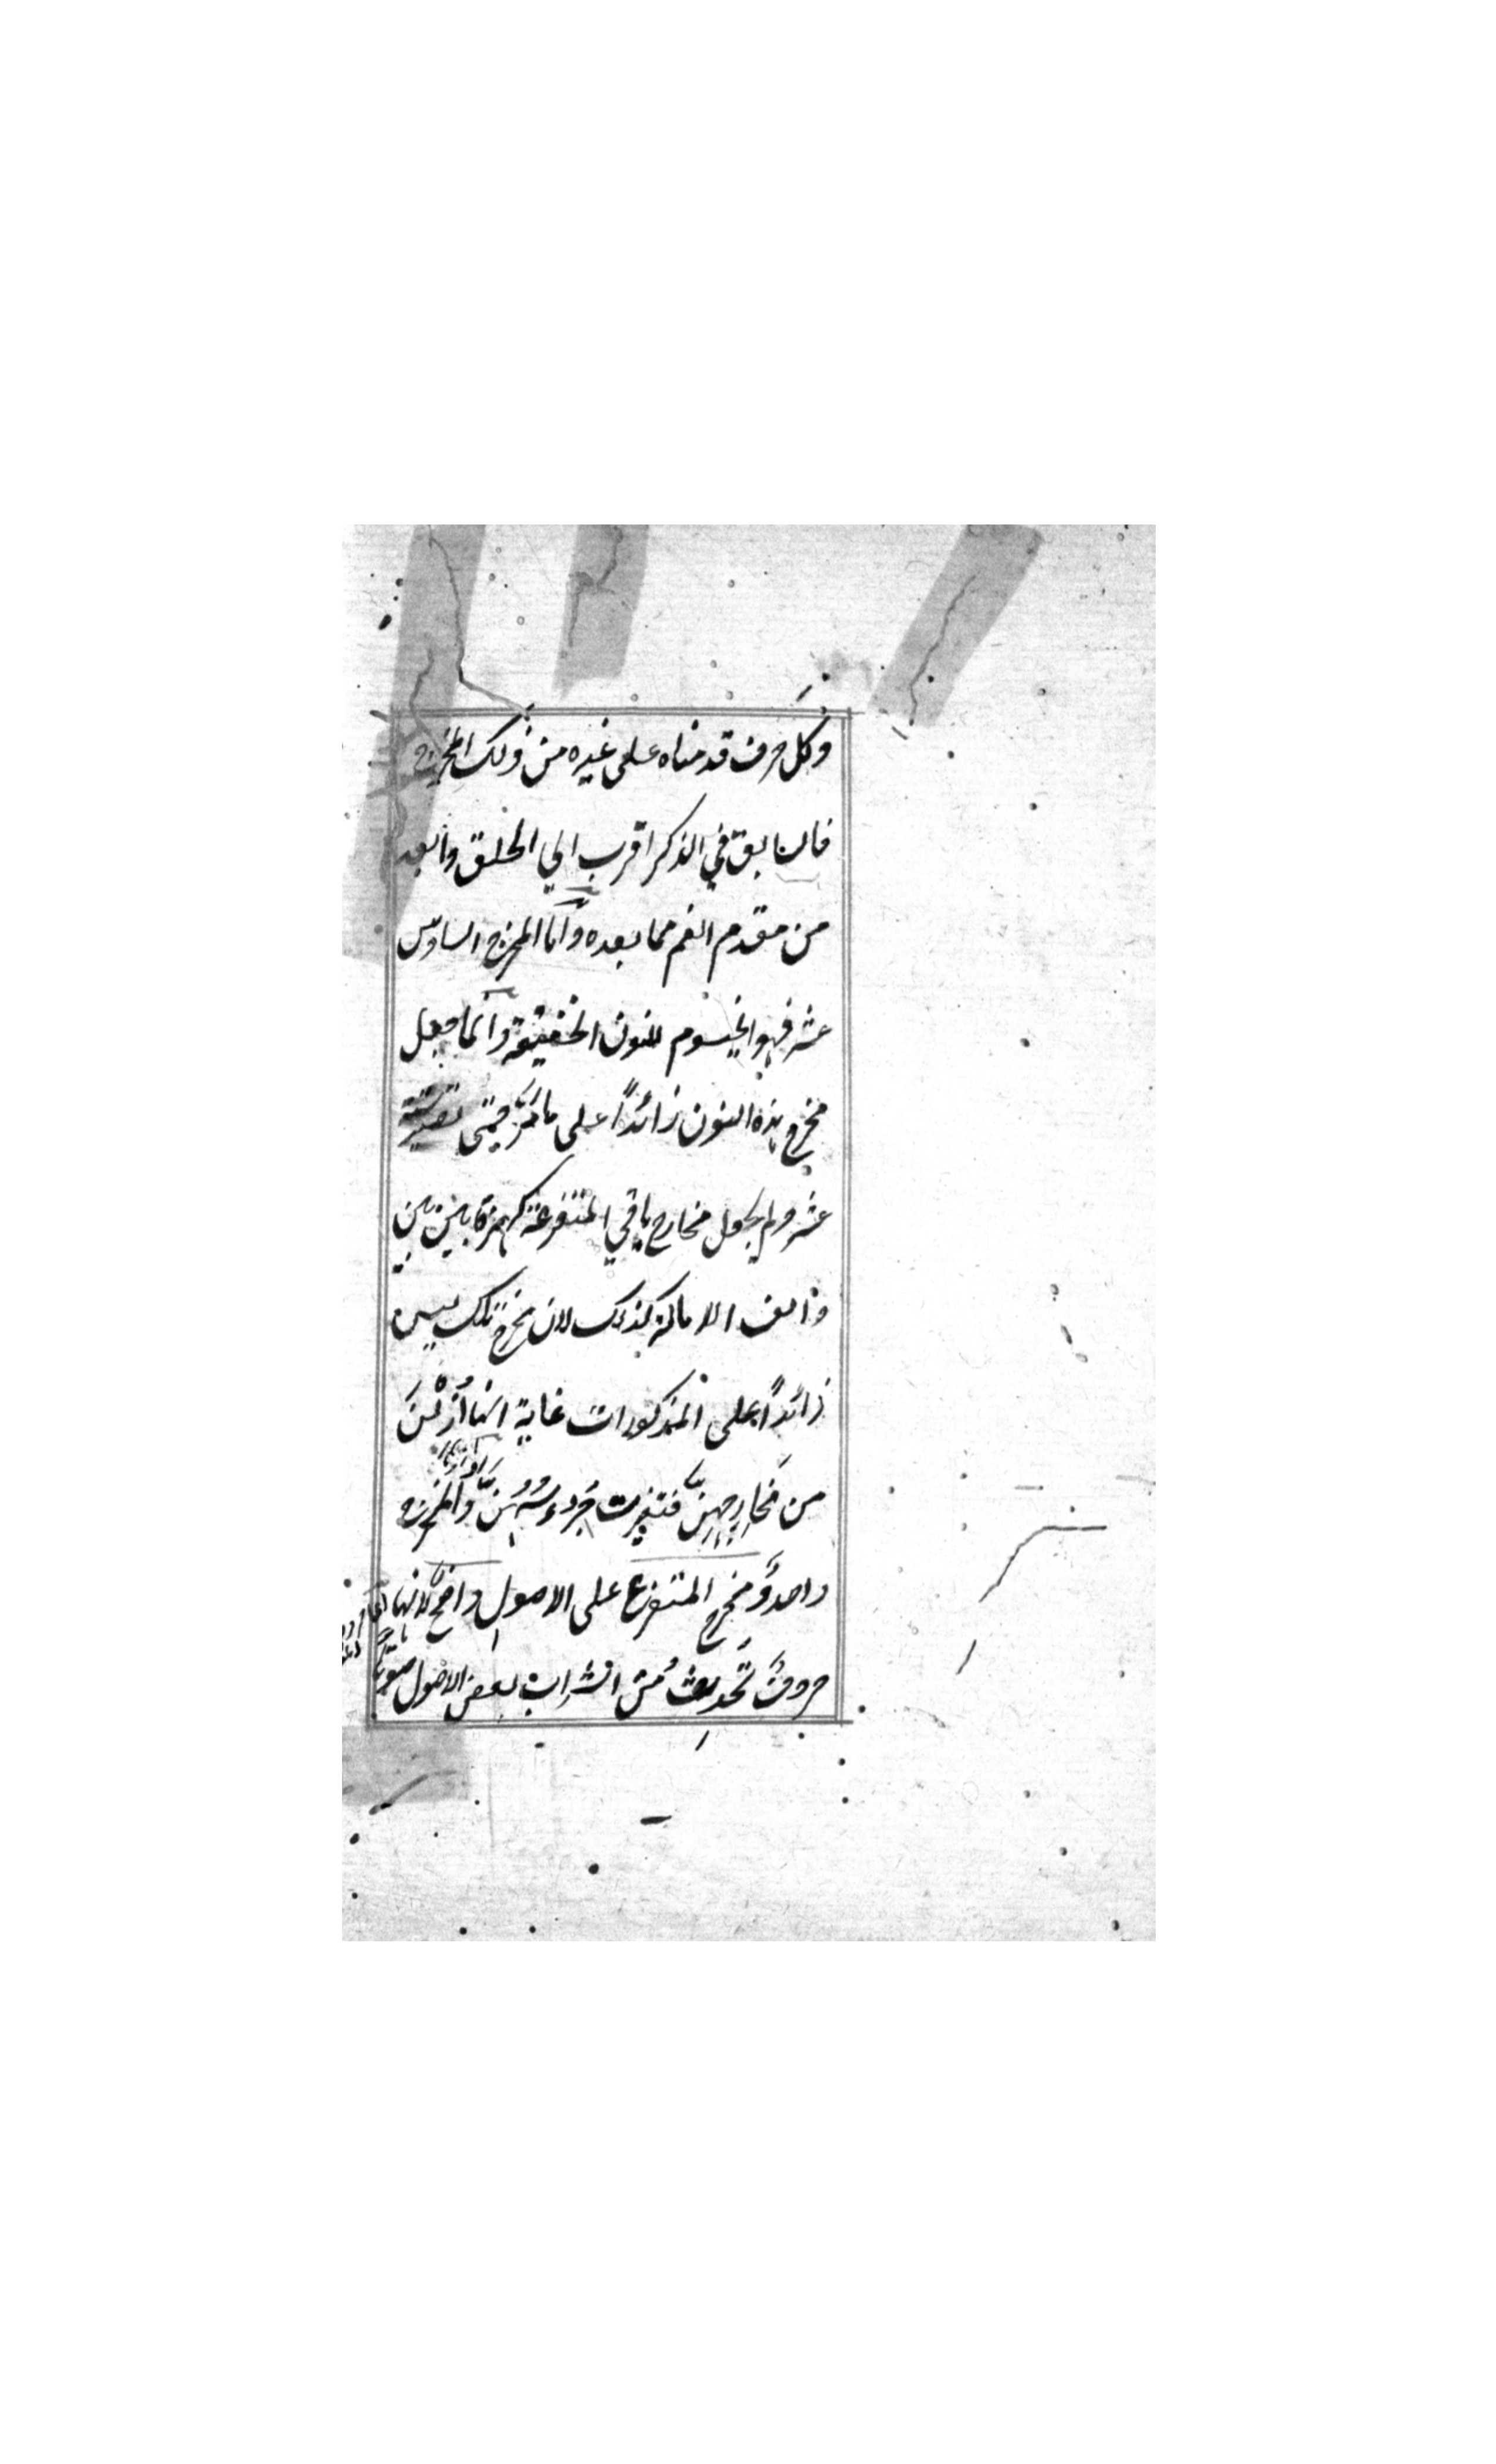 وكل حرف قدمناه على غيره من ذلك المخرج
فالسابق في الذكر اقرب الي الحلق وابعد
من مقدم الفم مما بعده وامّا المخرج السادس
عشر فهو الخيشوم للنون الخفيفة وانّما جعل
مخرج هذه النون زائداً على ما مَرَّ حتى
عشر ولم يجعل مخارج باقي المتفرعة كهمزة بين بين
والف الامالة كذلك لان مخرج تلك ليس
زائداً على المذكورات غاية انها اُزِلْنَ
من مَخَارِجِهِنَّ فتغيرت جُرُوسُهُنَّ والمخرج
واحد وَمخرج المتفرع على الاصول واضح لانها
حروفٌ تَحْدُثُ من اشراب بعض الاصول صوت